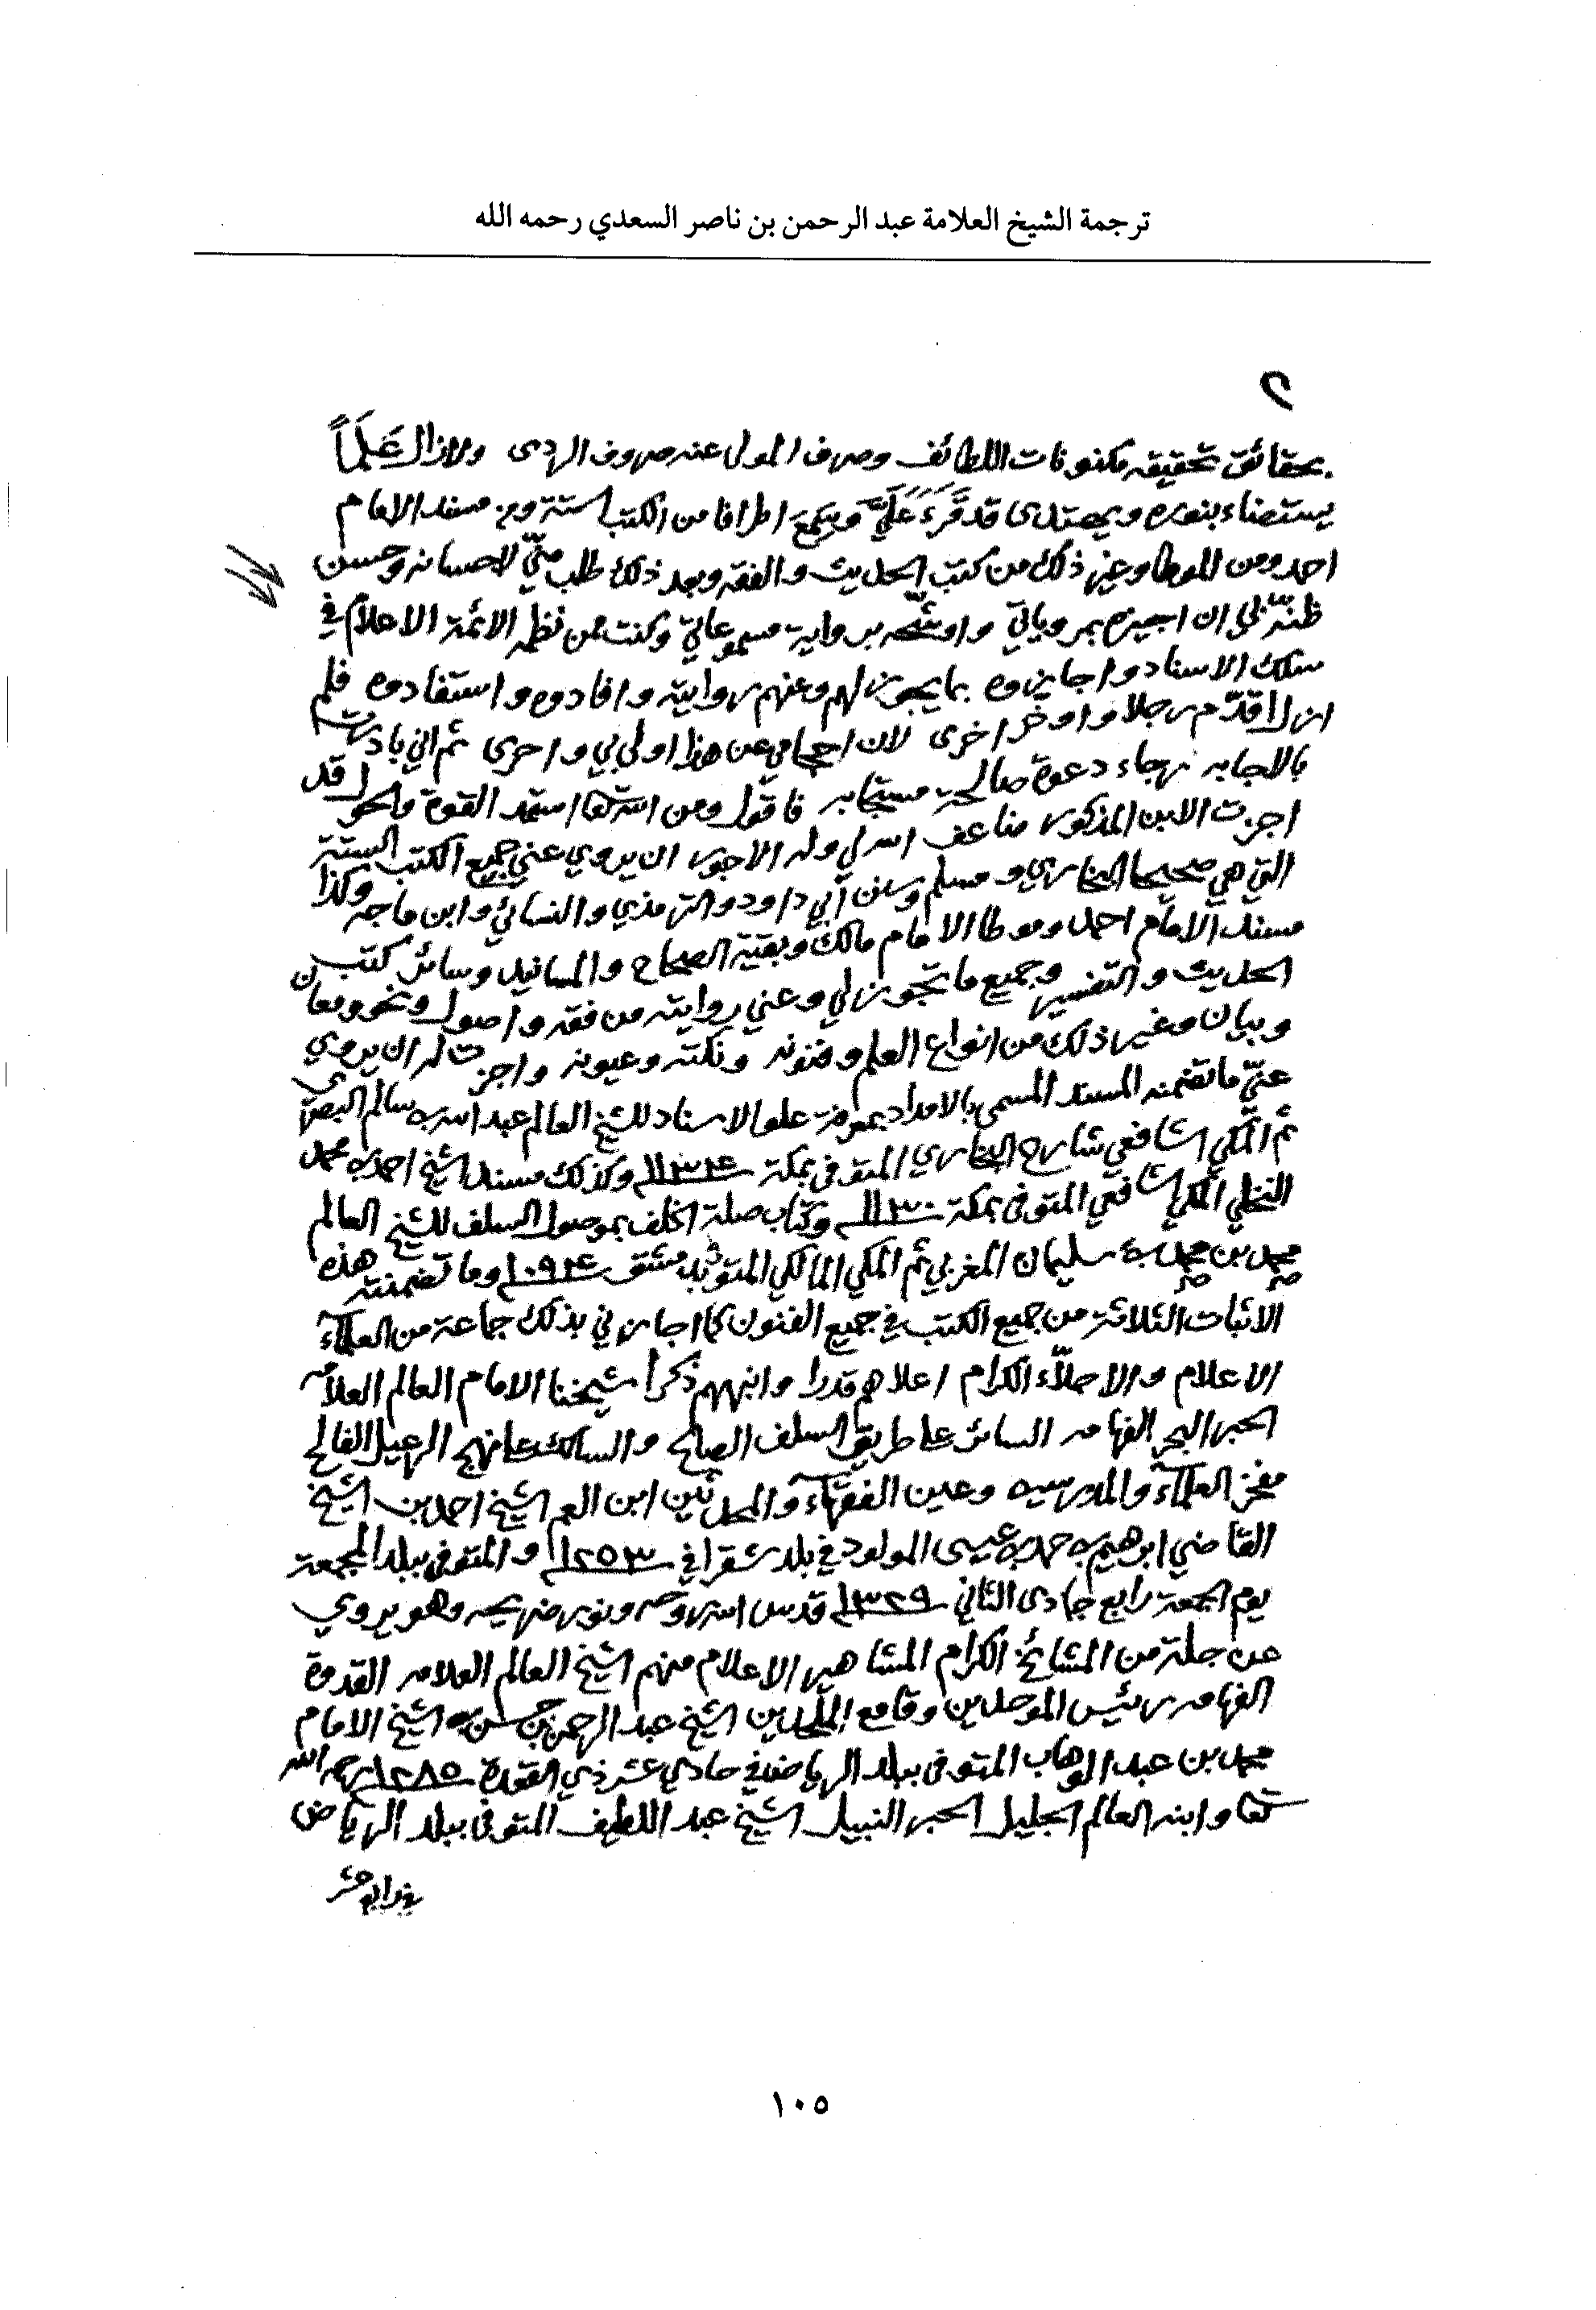 ترجمة الشيخ العلامة عبد الرحمن بن ناصر السعدي رحمه الله
٢
بحقائق تحقيقه مكنونات اللطائف وصرف المولى عنه صروف الردى ولازال عَلَماً
يستضاء بنوره ويهتدى قد قَرَءَ عَلَيَّ وسَمِعَ اطرافا من الكتب الستة ومن مسند الامام
احمد ومن الموطا وغير ذلك من كتب الحديث والفقه وبعد ذلك طلب منّي لاحسانه وحسن
ظنّه بي ان اجيزه بمروياتي واوشّحه برواية مسموعاتي وكنت ممن نظمه الائمة الاعلام في
سلك الاسناد واجازوه بما يجوز لهم وعنهم روايته وافادوه واستفادوه فلم
ازل اقدّم رجلا واوخر اخرى لان احجامي عن هذا اولى بي واحرى ثم اني بادرت
بالاجابه رجاء دعوة صالحة مستجابه فاقول ومن الله تعا استمد القوة والحول قد
اجزت الابن المذكور ضاعف الله لي وله الاجور ان يروي عني جميع الكتب الستة
التي هي صحيحا البخاري ومسلم وسنن أبي داود والترمذي والنسائي وابن ماجه وكذا
مسند الامام احمد وموطا الامام مالك وبقية الصحاح والمسانيد وسائر كتب
الحديث والتفسير وجميع ما تجوز لي وعني روايته من فقه واصول ونحو ومعان
وبيان وغير ذلك من انواع العلم وفنونه ونكته وعيونه واجزت له ان يروي
عنّي ما تضمنه المسند المسمى بالامداد بمعرفة علو الاسناد للشيخ العالم عبد الله بن سالم البصري
ثم المكي الشافعي شارح البخاري المتوفى بمكة سنة ١١٣٤ وكذلك مسند الشيخ احمد بن محمد
النخلي المكي الشافعي المتوفى بمكة سنة ١١٣٠ وكتاب صلة الخلف بموصول السلف للشيخ العالم
محمد بن محمد بن سليمان المغربي ثم المكي المالكي المتوفى بدمشق سنة ١٠٩٤ وما تضمنته هذه
الاثبات الثلاثة من جميع الكتب في جميع الفنون كما اجازني بذلك جماعة من العلمآء
الاعلام والاجلّاء الكرام اعلاهم قدرا وانبههم ذكراً شيخنا الامام العالم العلامه
الحبر البحر الفهامه السائر على طريق السلف الصالح والسالك على نهج الرعيل الفالح
مفخر العلمآء والمدرسين وعين الفقهآء والمحدثين ابن العم الشيخ احمد بن الشيخ
القاضي ابرهيم بن حمد بن عيسى المولود في بلد شقرا في سنة ١٢٥٣ والمتوفى ببلد المجمعة
يوم الجمعة رابع جمادى الثاني سنة ١٣٢٩ قدس الله روحه ونور ضريحه وهو يروي
عن جلة من المشائخ الكرام المشاهير الاعلام منهم الشيخ العالم العلامه القدوة
الفهامه رئيس الموحدين وقامع الملحدين الشيخ عبد الرحمن بن حسن بن الشيخ الامام
محمد بن عبد الوهاب المتوفى ببلد الرياض في حادي عشر ذي القعدة سنة ١٢٨٥ رحمه الله
تعا وابنه العالم الجليل الحبر النبيل الشيخ عبد اللطيف المتوفى ببلد الرياض
في رابع عشر
١٠٥